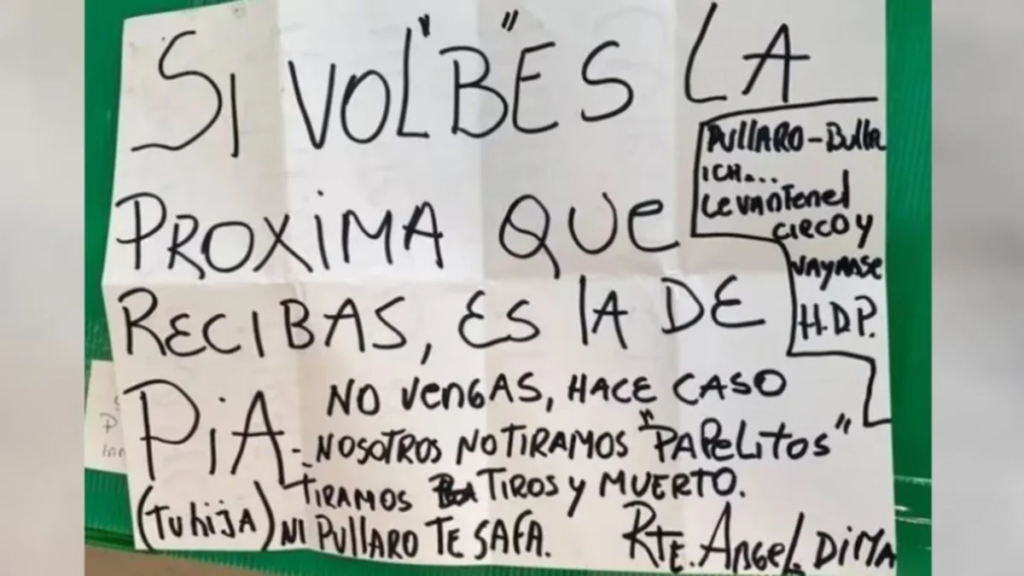 SI VOL"B"ES LA
PROXIMA QUE
RECIBAS, ES lA DE
PiA
(tu hija)
PULLARO - Bulla
ICH...
LevanTenel
CIRCO y
VAYANSE
H.D.P.
NO VeNGAS, HACE CASO
NOSOTROS NO TIRAMOS "PAPELITOS"
TIRAMOS TIROS y MUERTO.
NI PULLARO TE SAFA.
RTE. ANGEL. DIMA